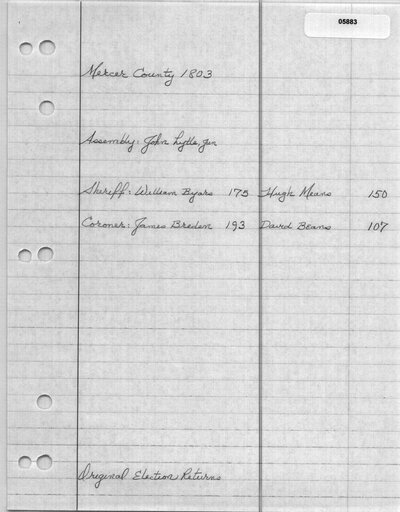 05883
Mercer County 1803
Assembly: John Lytle, Jun
Sheriff: William Byars 175 Hugh Means 150
Coroner: James Bredin 193 David Beans 107
Original Election Returns